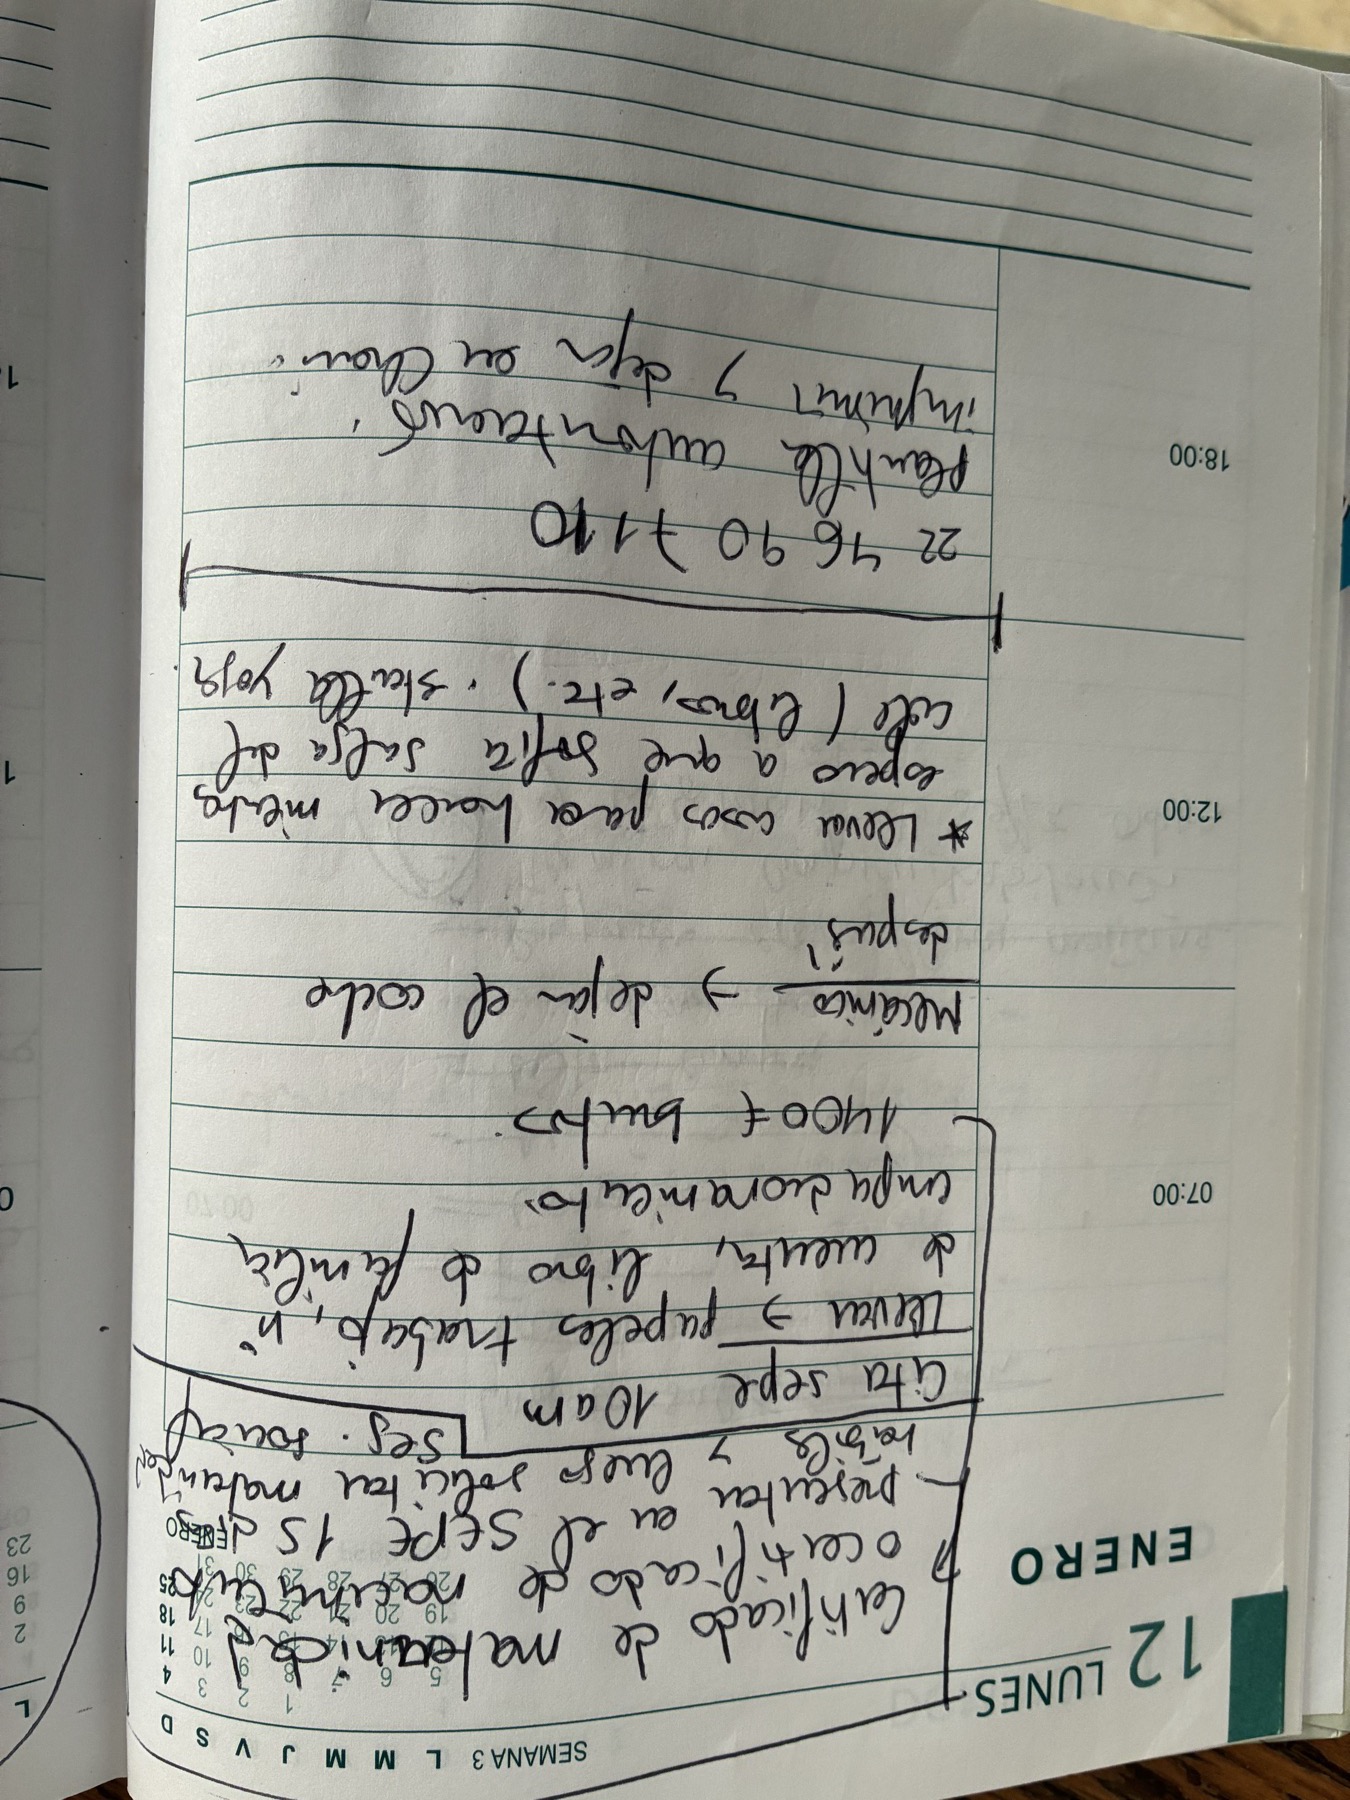 12 LUNES
ENERO
SEMANA 3 L M M J V S D
1 2 3 4
5 6 7 8 9 10 11
12 13 14 15 16 17 18
19 20 21 22 23 24 25
26 27 28 29 30 31
ENERO
Certificado de maternidad
o certificado de nacimiento
- presentar en el SEPE 15 días
hábiles y luego solicitar maternidad
seg. social
Cita sepe 10 am
Llevar → papeles trabajo, nº
de cuenta, libro de familia,
empadronamiento
1400 € brutos
07:00
Mecánico → dejar el coche
después
12:00
* Llevar cosas para hacer mientras
espero a que Sofía salga del
cole (libros, etc.)
yoga
22 46 90 71 10
plantilla
imprimir y dejar en
18:00
L
2
9
16
23